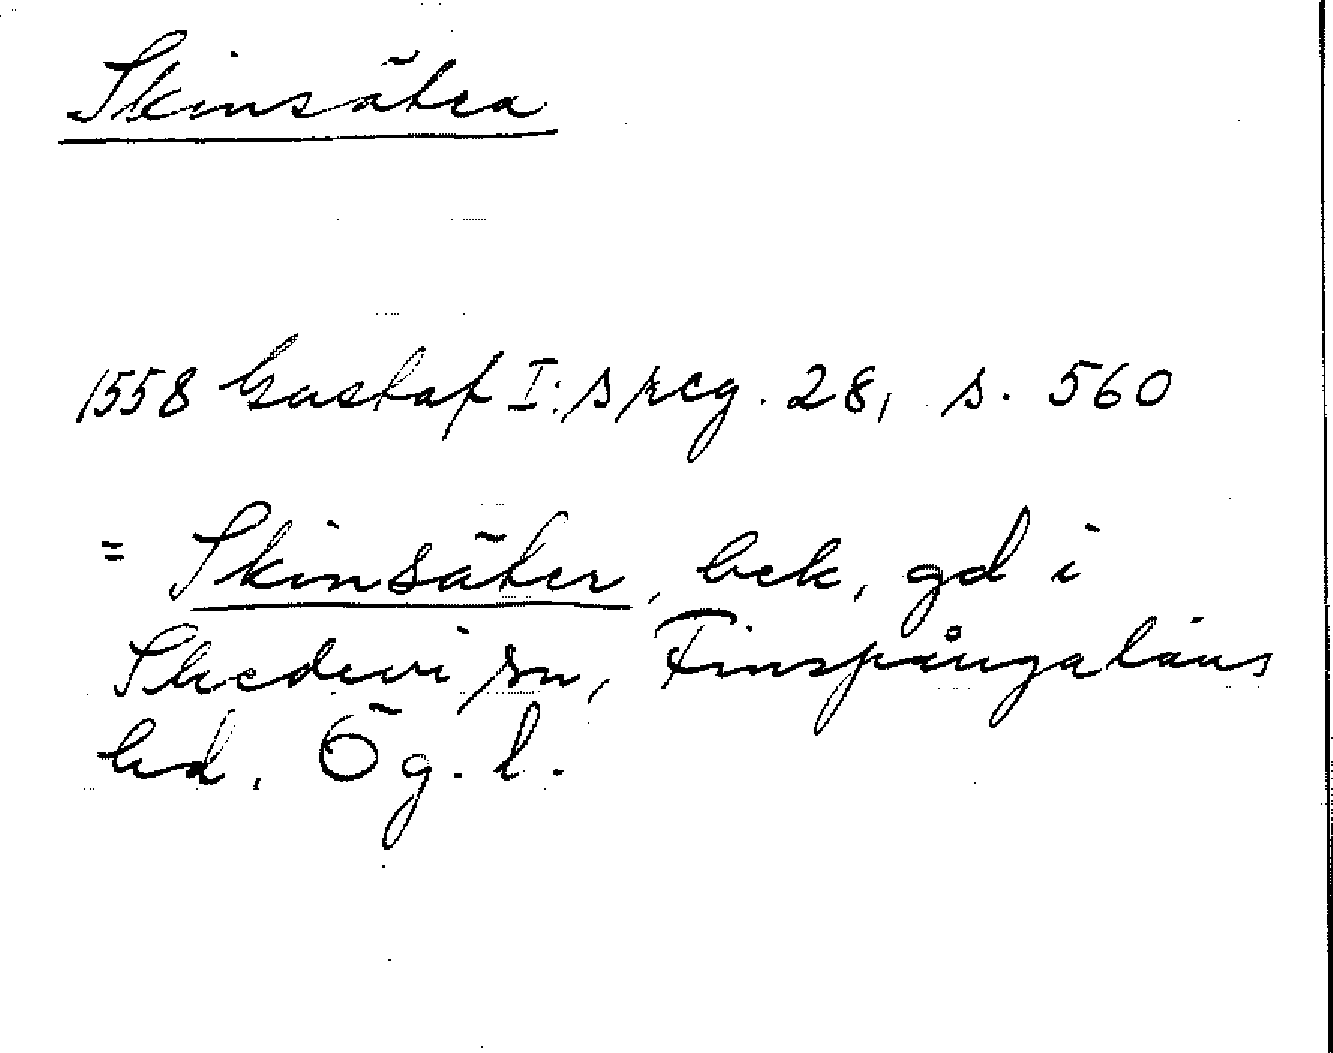 Skinsätra
1558 Gustaf I:s reg. 28, s. 560
= Skinsäter, bek, gd i
Skedevi sn, Finspångaläns
hd. Ög. l.